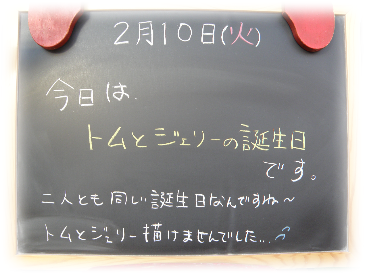 2月10日(火)
今日は、
トムとジェリーの誕生日
です。
二人とも同じ誕生日なんですね~
トムとジェリー描けませんでした...